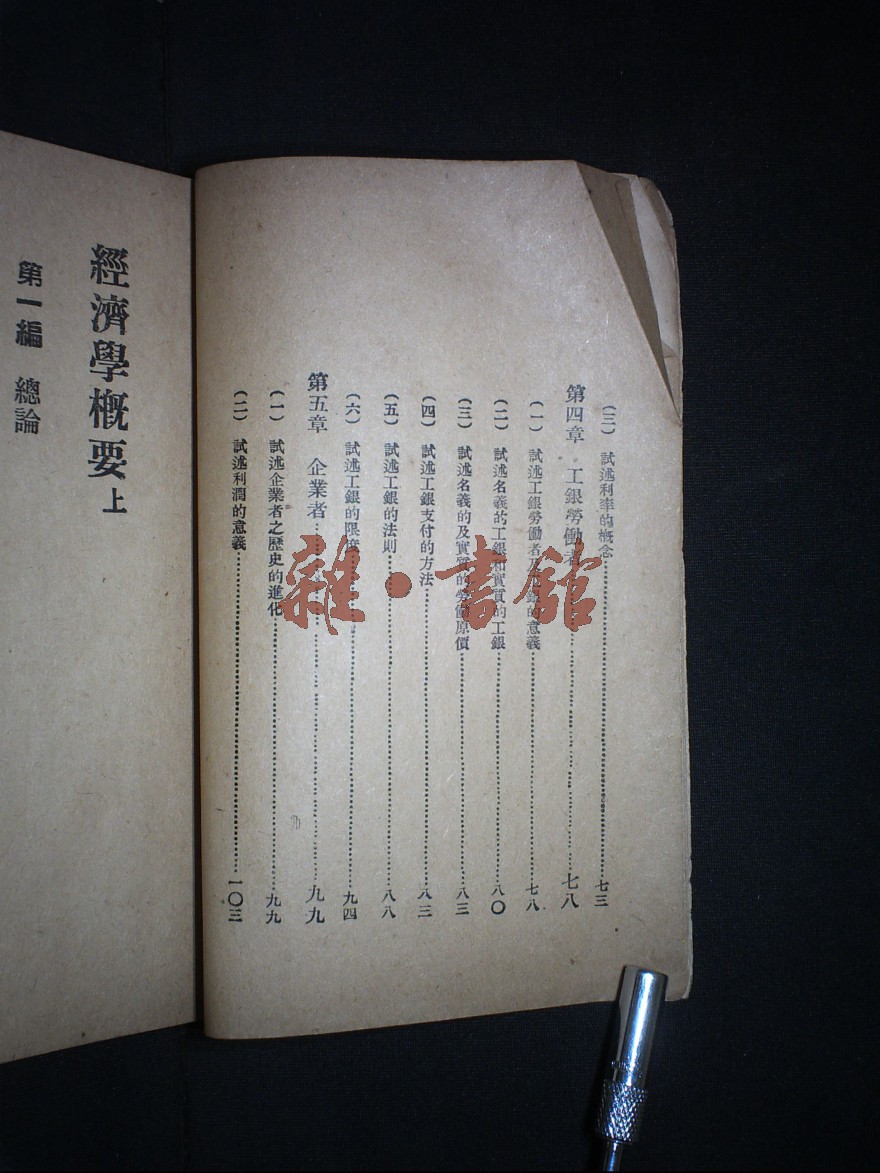 (三) 試述利率的概念……七三
第四章 工銀勞働者……七八
(一) 試述工銀勞働者及工銀的意義……七八
(二) 試述名義的工銀和實質的工銀……八〇
(三) 試述名義的及實質的勞働原價……八三
(四) 試述工銀支付的方法……八三
(五) 試述工銀的法則……八八
(六) 試述工銀的限度……九四
第五章 企業者……九九
(一) 試述企業者之歷史的進化……九九
(二) 試述利潤的意義……一〇三
經濟學概要 上
第一編 總論
雜·書館